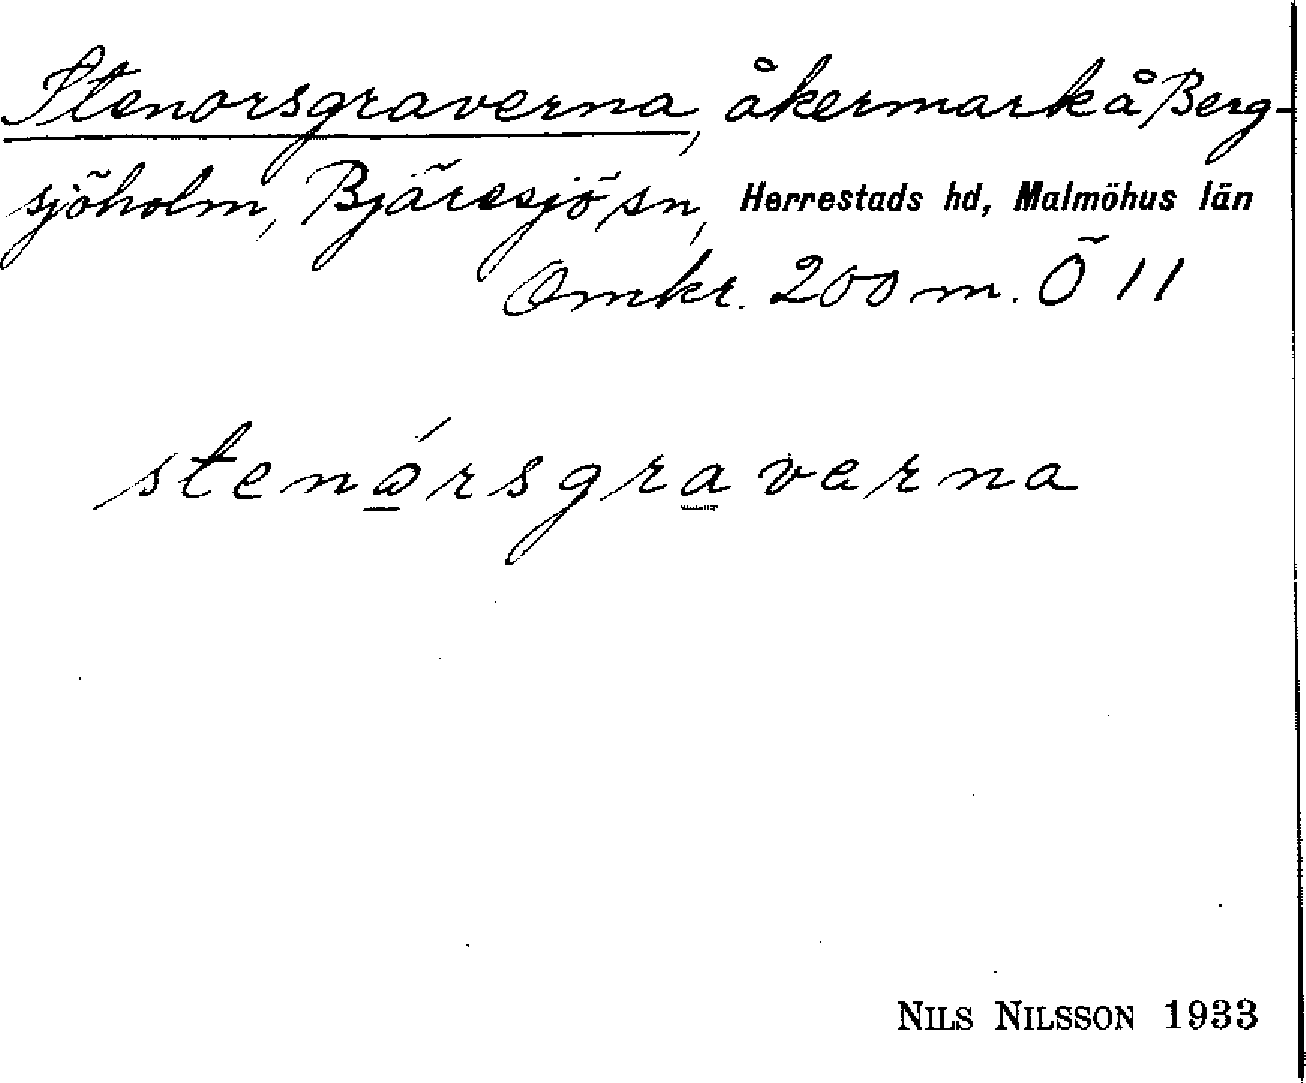 Stenorsgraverna, åkermark å Berg-
sjöholm, Bjäresjö sn, Herrestads hd, Malmöhus län
Omkr. 200 m. Ö 11
stenǫ́rsgraverna
NILS NILSSON 1933